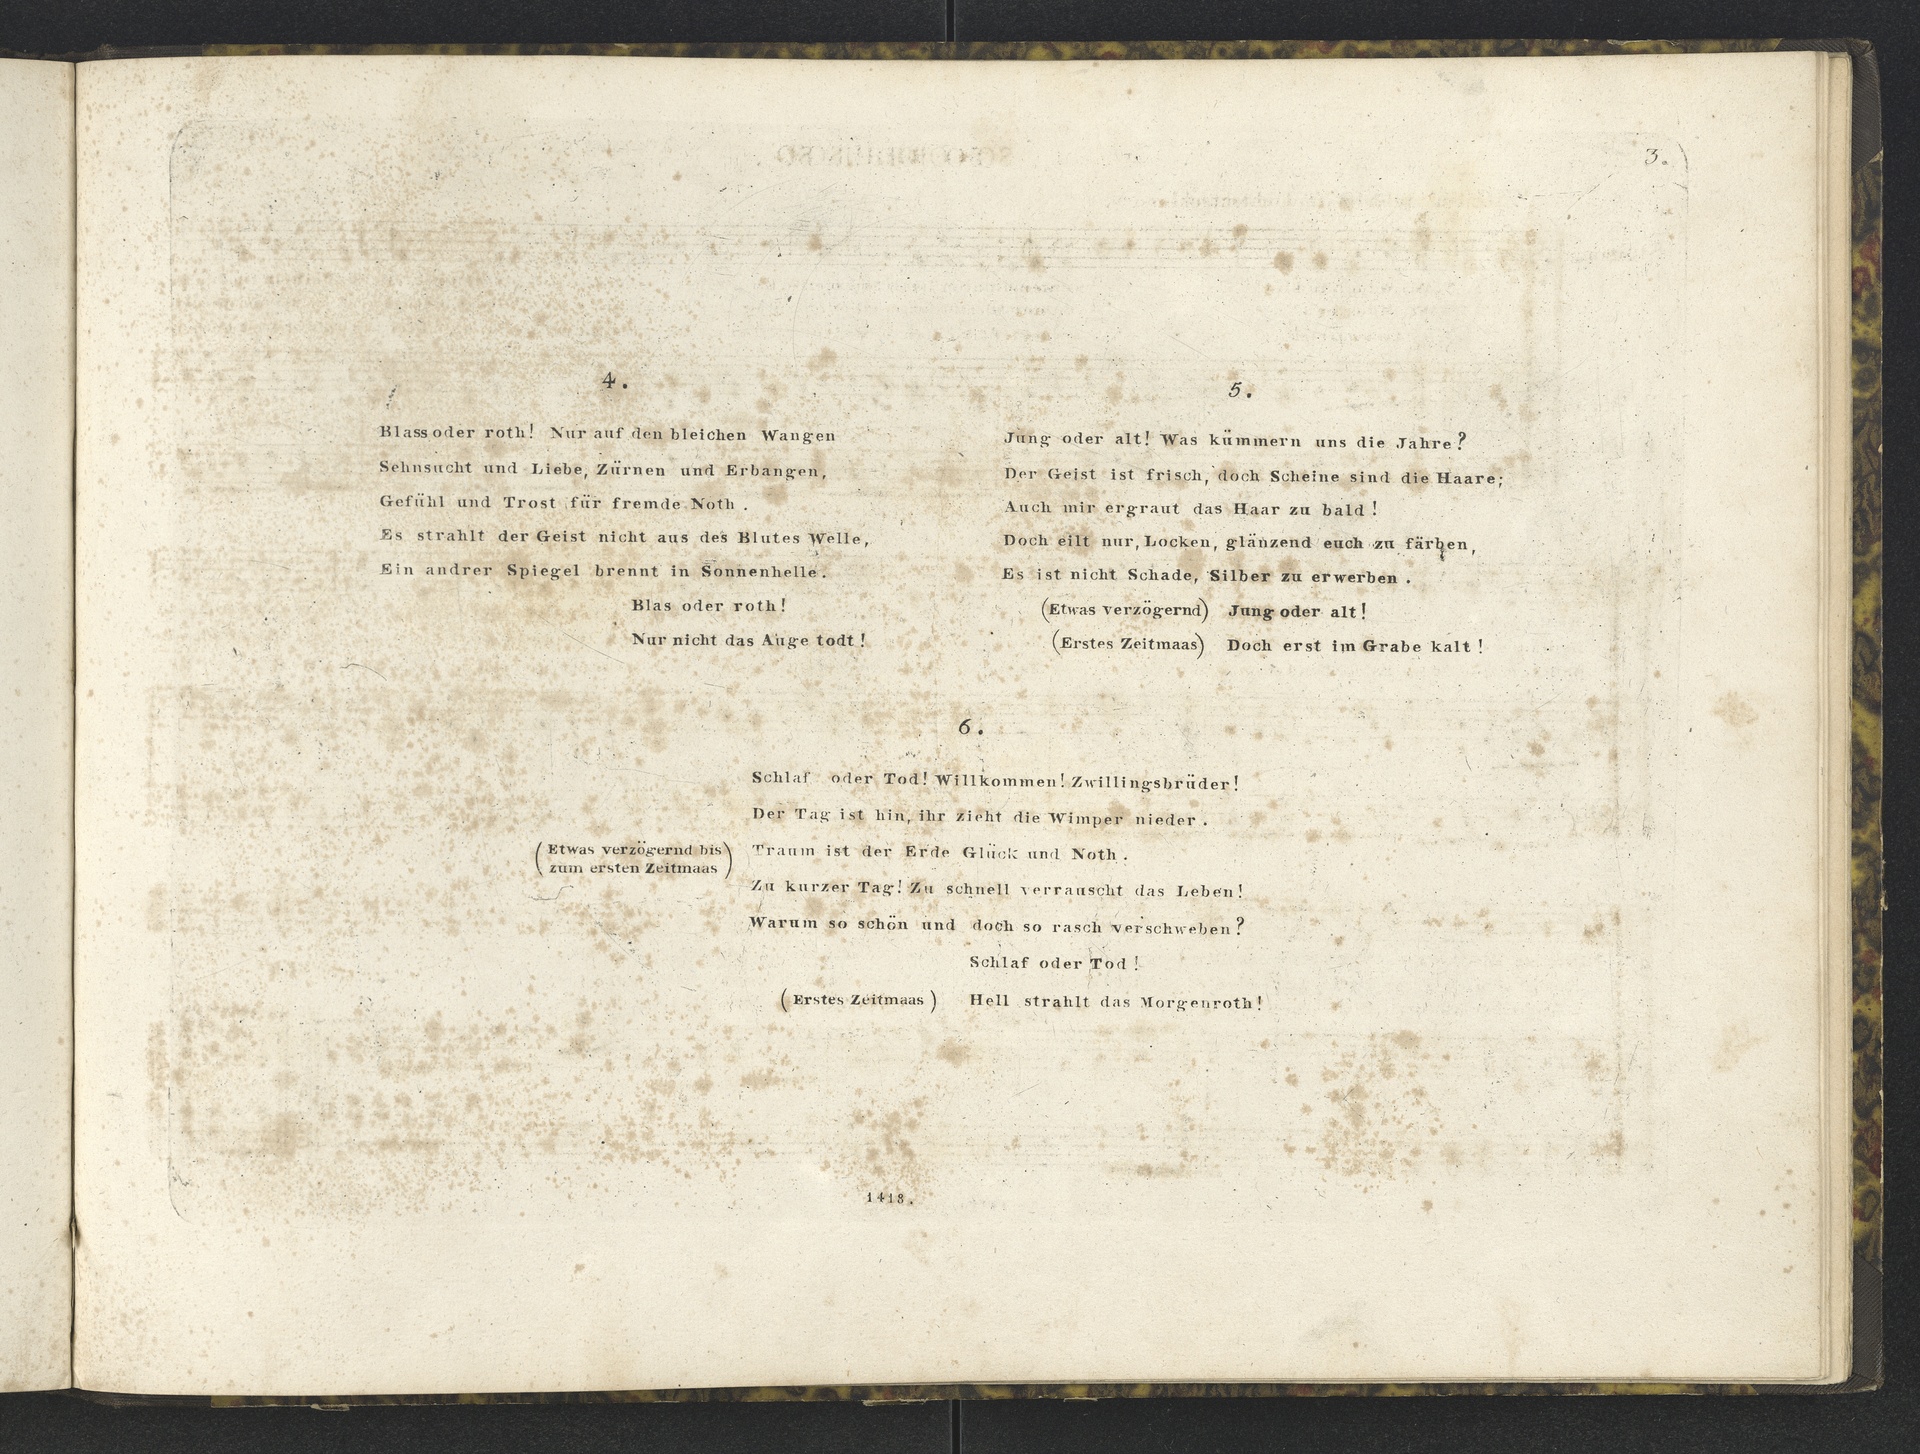 3.
4.
Blass oder roth! Nur auf den bleichen Wangen
Sehnsucht und Liebe, Zürnen und Erbangen,
Gefühl und Trost für fremde Noth.
Es strahlt der Geist nicht aus des Blutes Welle,
Ein andrer Spiegel brennt in Sonnenhelle.
Blas oder roth!
Nur nicht das Auge todt!
5.
Jung oder alt! Was kümmern uns die Jahre?
Der Geist ist frisch, doch Scheine sind die Haare;
Auch mir ergraut das Haar zu bald!
Doch eilt nur, Locken, glänzend euch zu färben,
Es ist nicht Schade, Silber zu erwerben.
(Etwas verzögernd) Jung oder alt!
(Erstes Zeitmaas) Doch erst im Grabe kalt!
6.
Schlaf oder Tod! Willkommen! Zwillingsbrüder!
Der Tag ist hin, ihr zieht die Wimper nieder.
(Etwas verzögernd bis
zum ersten Zeitmaas) Traum ist der Erde Glück und Noth.
Zu kurzer Tag! Zu schnell verrauscht das Leben!
Warum so schön und doch so rasch verschweben?
Schlaf oder Tod!
(Erstes Zeitmaas) Hell strahlt das Morgenroth!
1418.